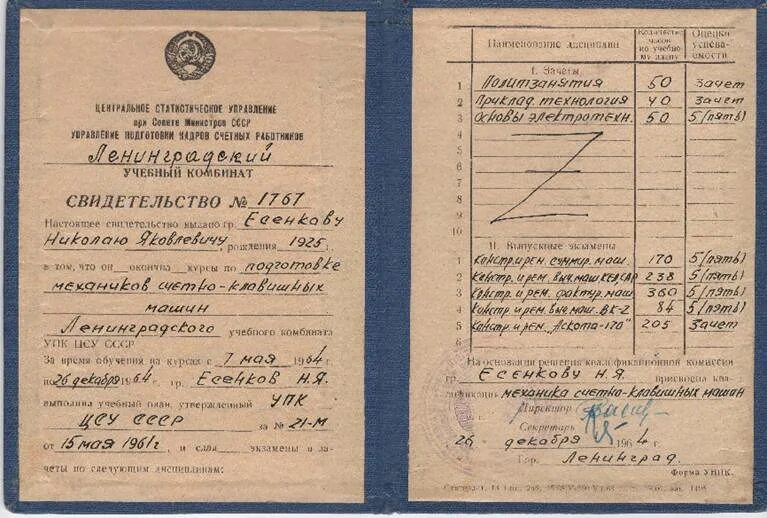 ЦЕНТРАЛЬНОЕ СТАТИСТИЧЕСКОЕ УПРАВЛЕНИЕ
при Совете Министров СССР
УПРАВЛЕНИЕ ПОДГОТОВКИ КАДРОВ СЧЕТНЫХ РАБОТНИКОВ
Ленинградский
УЧЕБНЫЙ КОМБИНАТ
СВИДЕТЕЛЬСТВО № 1767
Настоящее свидетельство выдано гр. Есенкову
Николаю Яковлевичу, рождения 1925 г.
в том, что он окончил курсы по подготовке
механиков счетно-клавишных
машин
Ленинградского учебного комбината
УПК ЦСУ СССР
За время обучения на курсах с 7 мая 1964 г.
по 26 декабря 1964 г. гр. Есенков Н.Я.
выполнил учебный план, утвержденный УПК
ЦСУ СССР за № 21-М
от 15 мая 1961г., и сдал экзамены и за-
четы по следующим дисциплинам:
Наименование дисциплин
Количество часов по учебному плану
Оценка успеваемости
I. Зачеты
1 Политзанятия 50 Зачет
2 Приклад. технология 40 Зачет
3 Основы электротехн. 50 5 (пять)
4
5
6
7
8
9
10
II. Выпускные экзамены
1 Констр. и рем. суммир. маш. 170 5 (пять)
2 Констр. и рем. выч. маш 238 5 (пять)
3 Констр. и рем. фактур. маш. 360 5 (пять)
4 Констр. и рем. выч. маш. ВК-2 84 5 (пять)
5 Констр. и рем. "Аскота-170" 205 Зачет
6
На основании решения квалификационной комиссии
гр. Есенкову Н.Я. присвоена ква-
лификация механика счетно-клавишных машин
Директор
Секретарь
26 декабря 1964 г.
Гор. Ленинград.
Форма УПК.